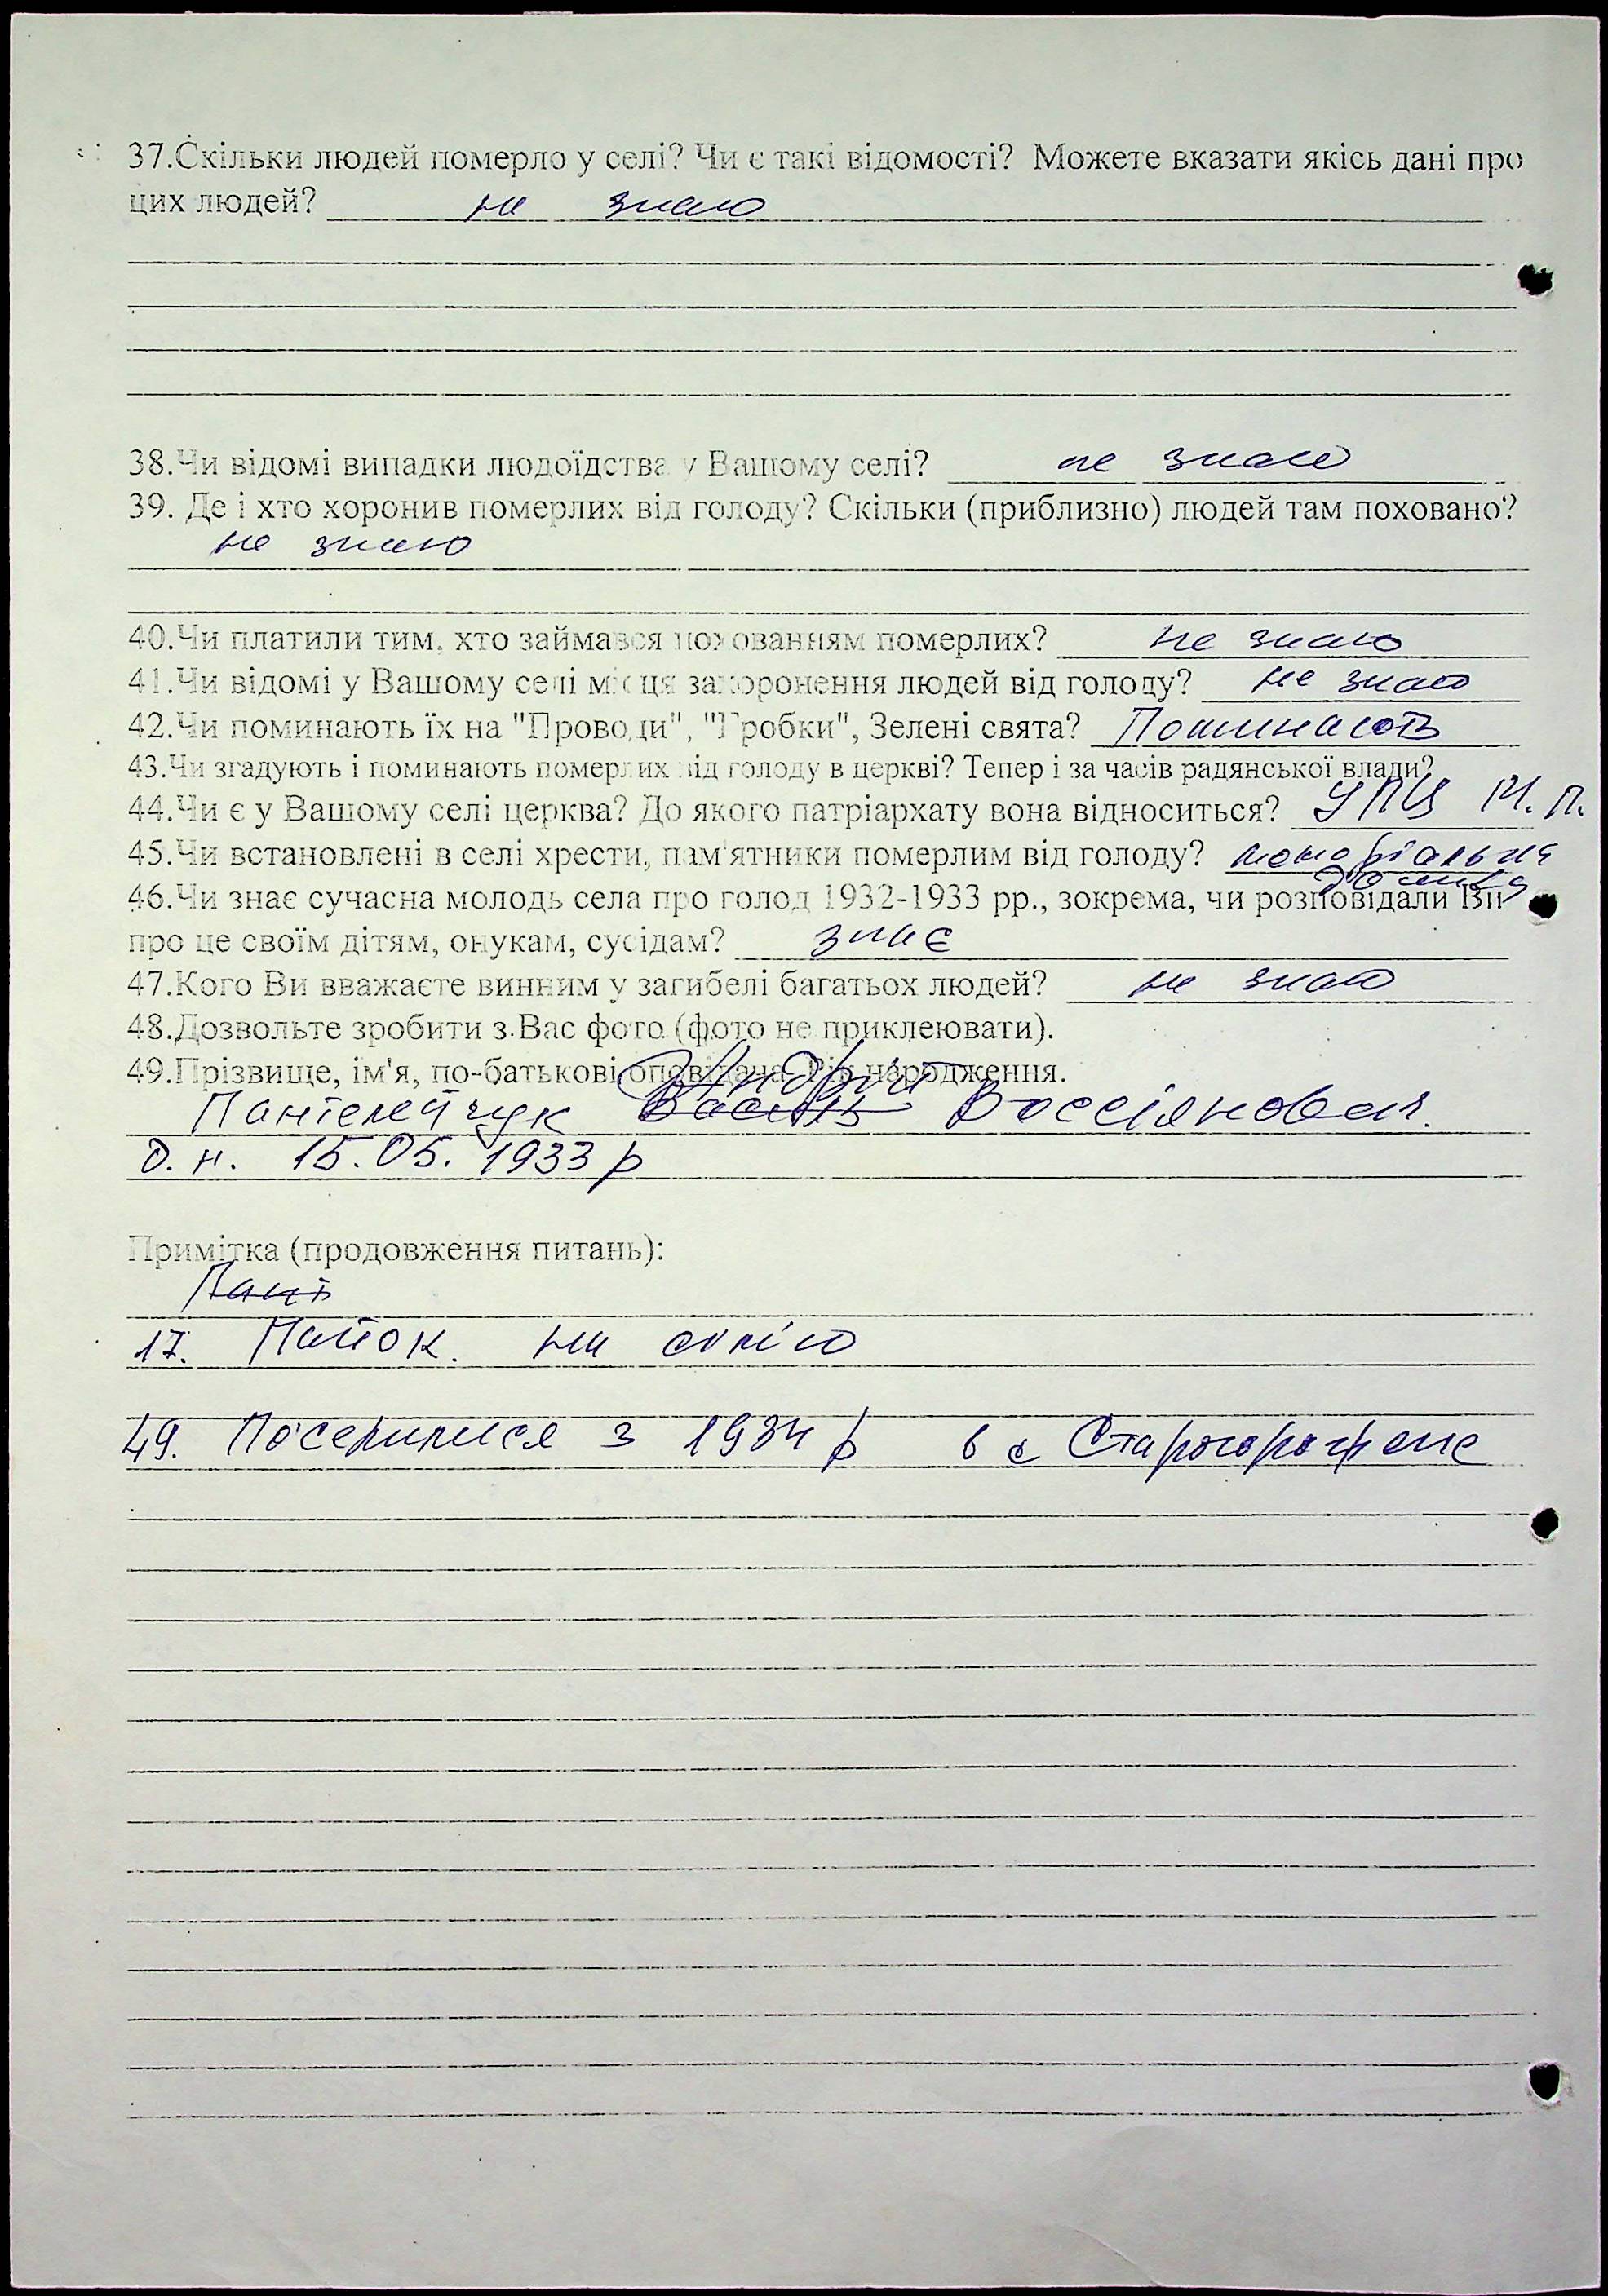 37.Скільки людей померло у селі? Чи є такі відомості? Можете вказати якісь дані про
цих людей? не знаю
38.Чи відомі випадки людоїдства у Вашому селі? не знаю
39. Де і хто хоронив померлих від голоду? Скільки (приблизно) людей там поховано?
не знаю
40.Чи платили тим, хто займався похованням померлих? не знаю
41.Чи відомі у Вашому селі місця захоронення людей від голоду? не знаю
42.Чи поминають їх на "Проводи", "Гробки", Зелені свята? Поминають
43.Чи згадують і поминають померлих від голоду в церкві? Тепер і за часів радянської влади?
44.Чи є у Вашому селі церква? До якого патріархату вона відноситься? УПЦ М.П.
45.Чи встановлені в селі хрести, пам'ятники померлим від голоду? меморіальна
дошка
46.Чи знає сучасна молодь села про голод 1932-1933 рр., зокрема, чи розповідали Ви
про це своїм дітям, онукам, сусідам? знає
47.Кого Ви вважаєте винним у загибелі багатьох людей? не знаю
48.Дозвольте зробити з Вас фото (фото не приклеювати).
49.Прізвище, ім'я, по-батькові оповідача. Рік народження.
Андрій
Пантелейчук Василь
д.н. 15.05.1933 р
Примітка (продовження питань):
Пант
17. Пайок. на
49. Поселилися з 1934 р в с